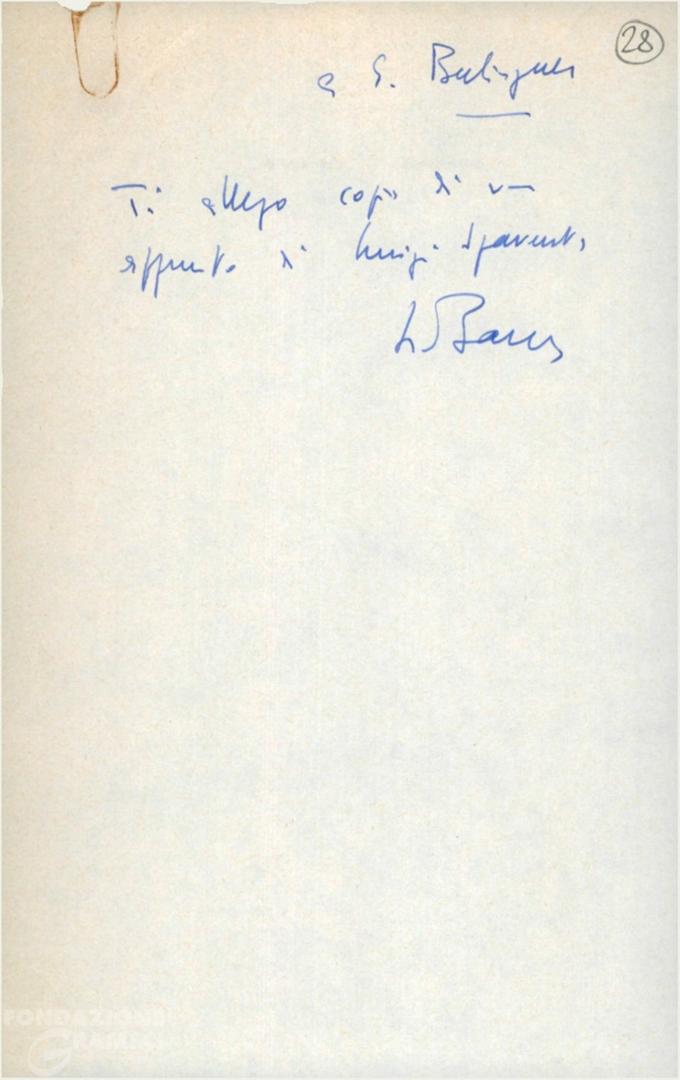 28
a E. Berlinguer
Ti allego copia di un
appunto di Luigi Spaventa
L Barca
FONDAZIONE
GRAMSCI